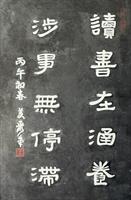 讀書在涵養
涉事無停滯
丙午初春